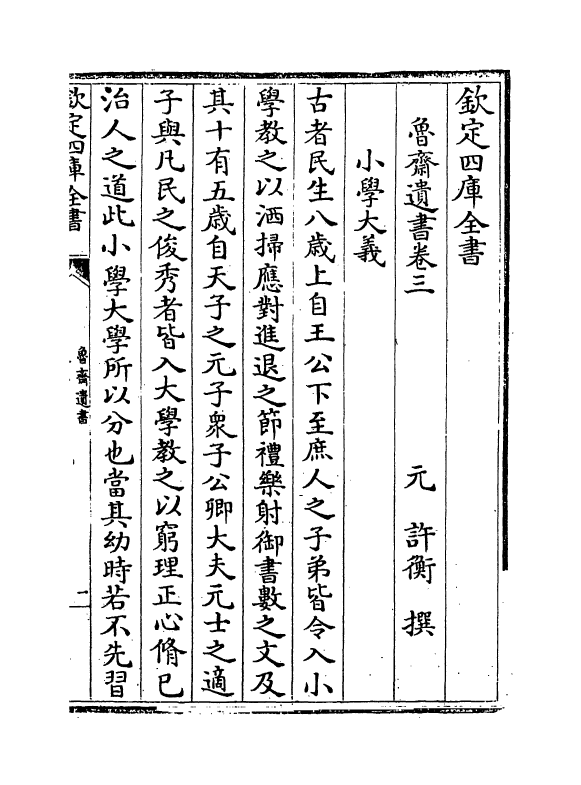 欽定四庫全書
魯齋遺書卷三
元 許衡 撰
小學大義
古者民生八歲上自王公下至庶人之子弟皆令入小
學教之以洒掃應對進退之節禮樂射御書數之文及
其十有五歲自天子之元子衆子公卿大夫元士之適
子與凡民之俊秀者皆入大學教之以窮理正心脩已
治人之道此小學大學所以分也當其幼時若不先習
欽定四庫全書
魯齋遺書